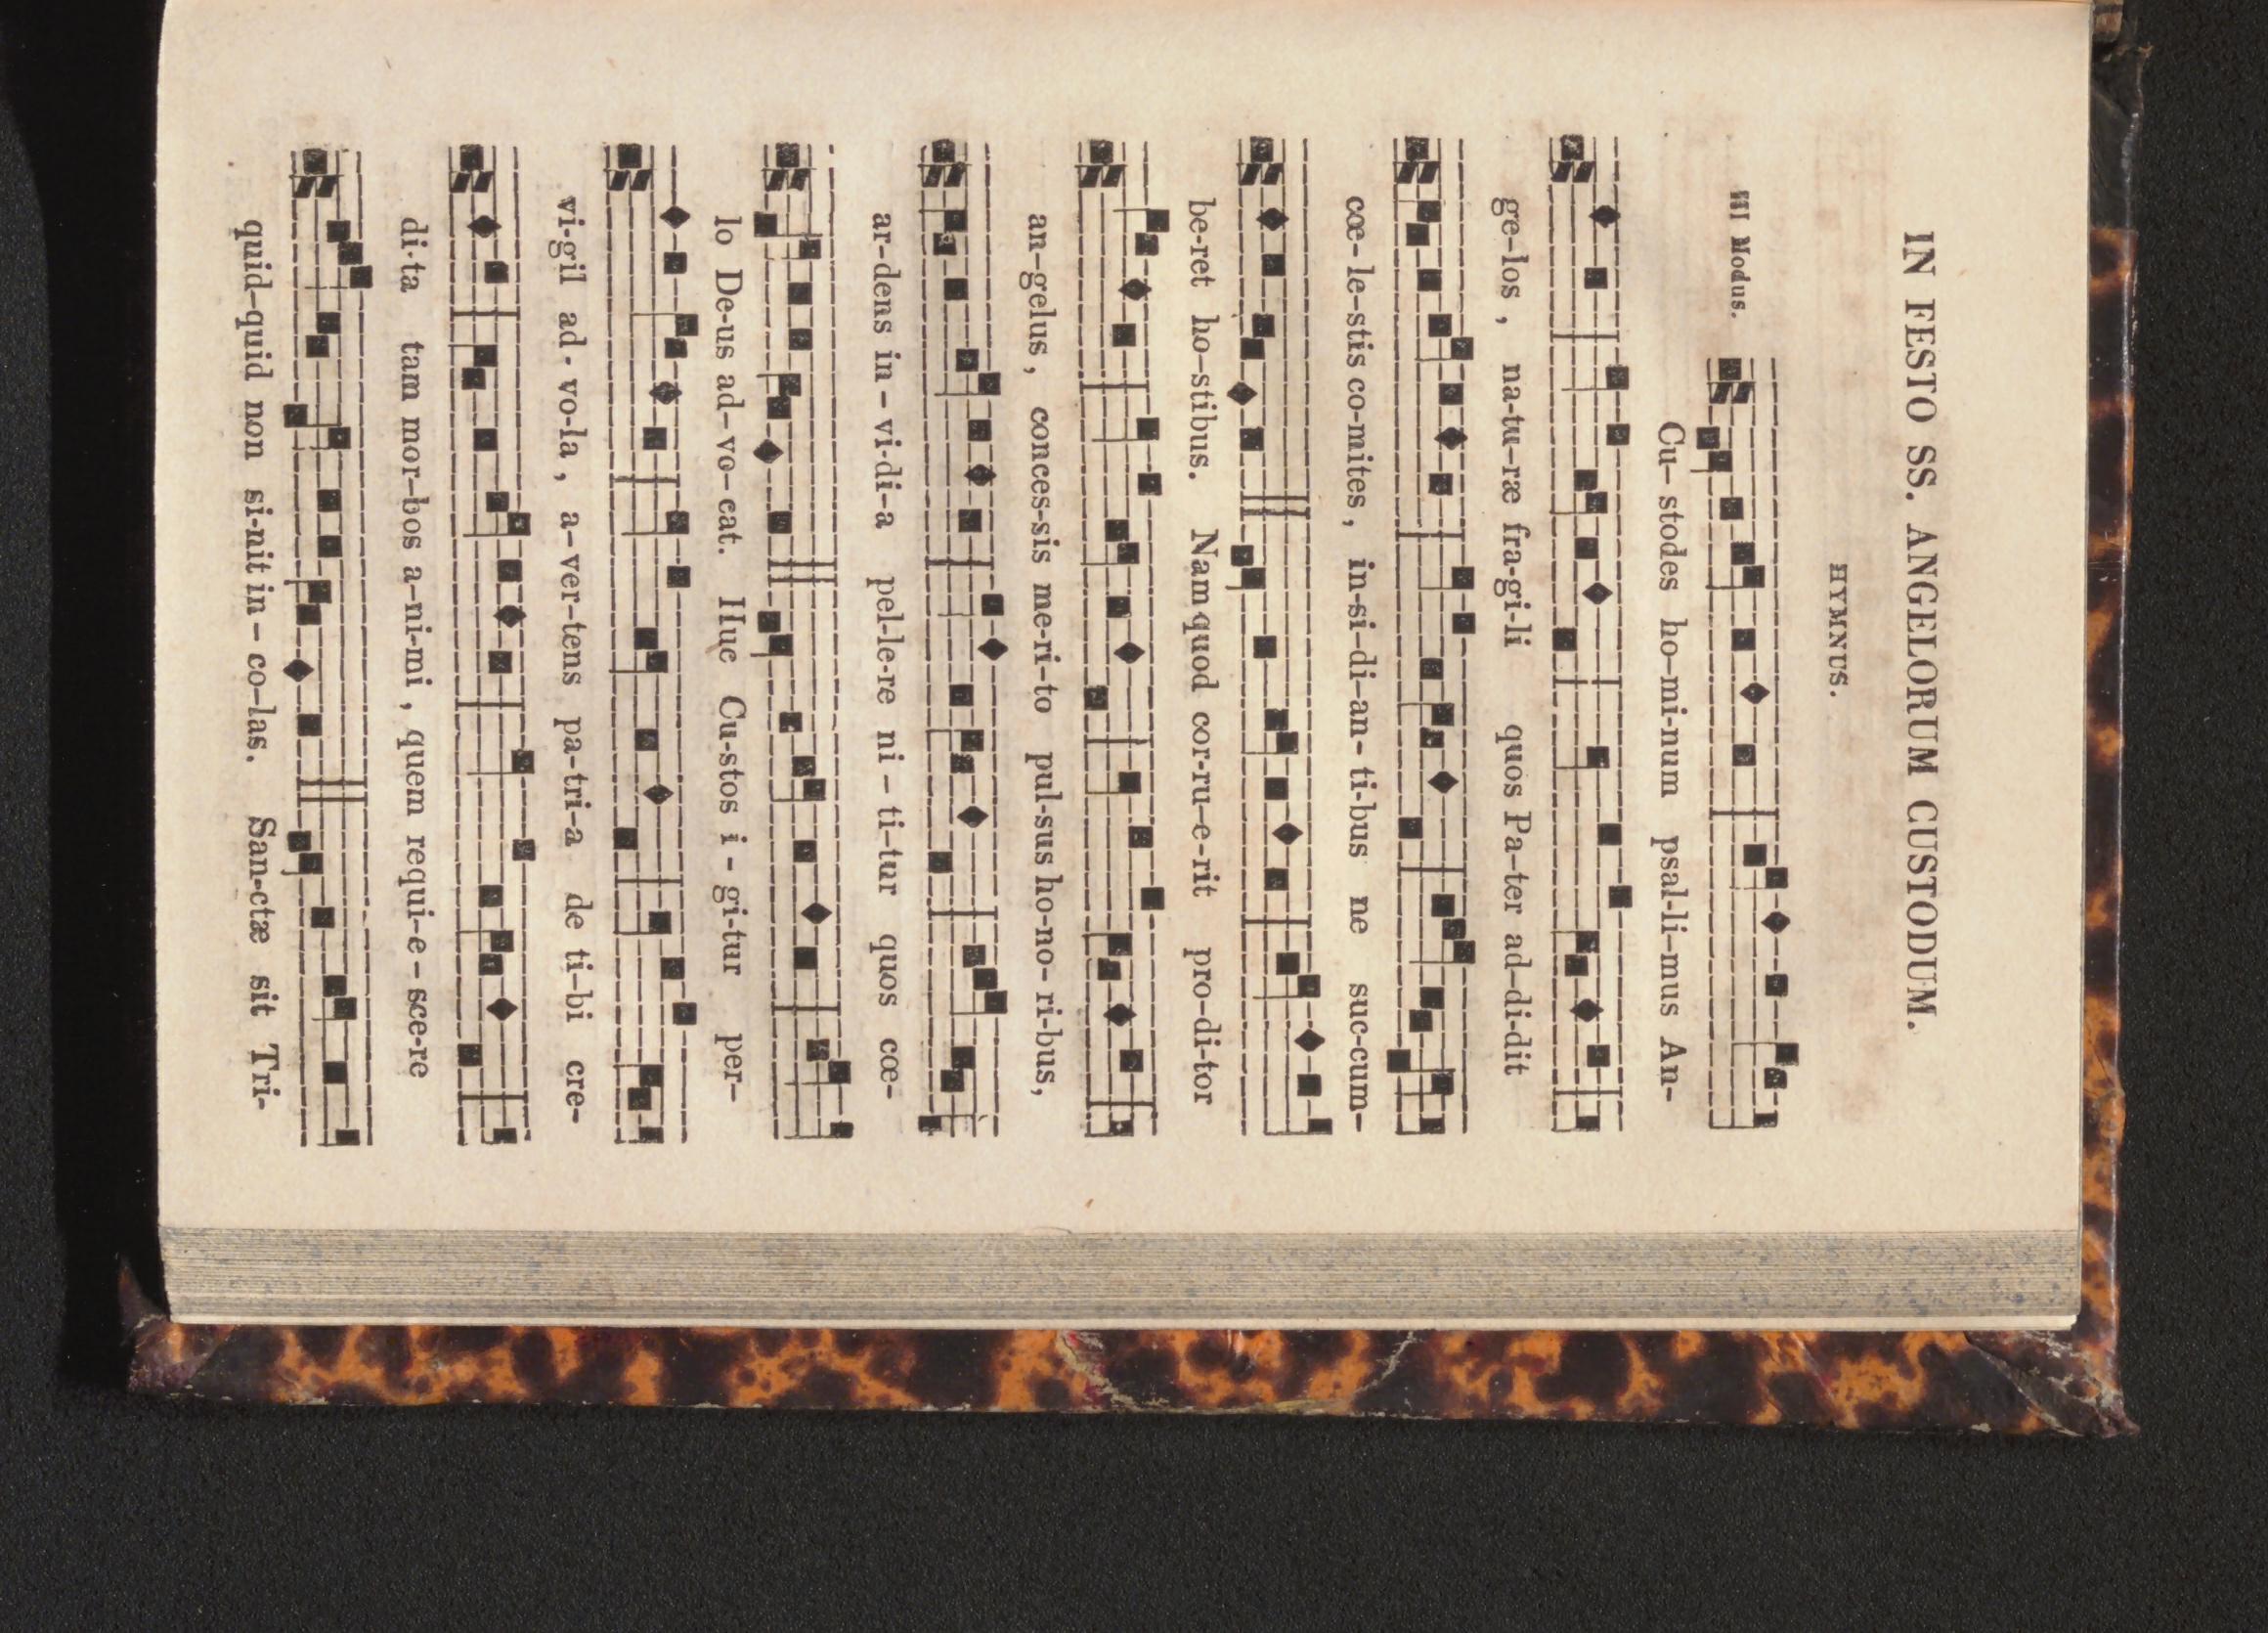 IN FESTO SS. ANGELORUM CUSTODUM.
HYMNUS.
III Modus.
Cu- stodes ho-mi-num psal-li-mus An-
ge-los , na-tu-ræ fra-gi-li quos Pa-ter ad-di-dit
cœ-le-stis co-mites, in-si-di-an-ti-bus ne suc-cum-
be-ret ho-stibus. Nam quod cor-ru-e-rit pro-di-tor
an-gelus , conces-sis me-ri-to pul-sus ho-no-ri-bus,
ar-dens in-vi-di-a pel-le-re ni-ti-tur quos cœ-
lo De-us ad-vo-cat. Huc Cu-stos i-gi-tur per-
vi-gil ad-vo-la , a-ver-tens pa-tri-a de ti-bi cre-
di-ta tam mor-bos a-ni-mi , quem requi-e-sce-re
quid-quid non si-nit in-co-las. San-ctæ sit Tri-